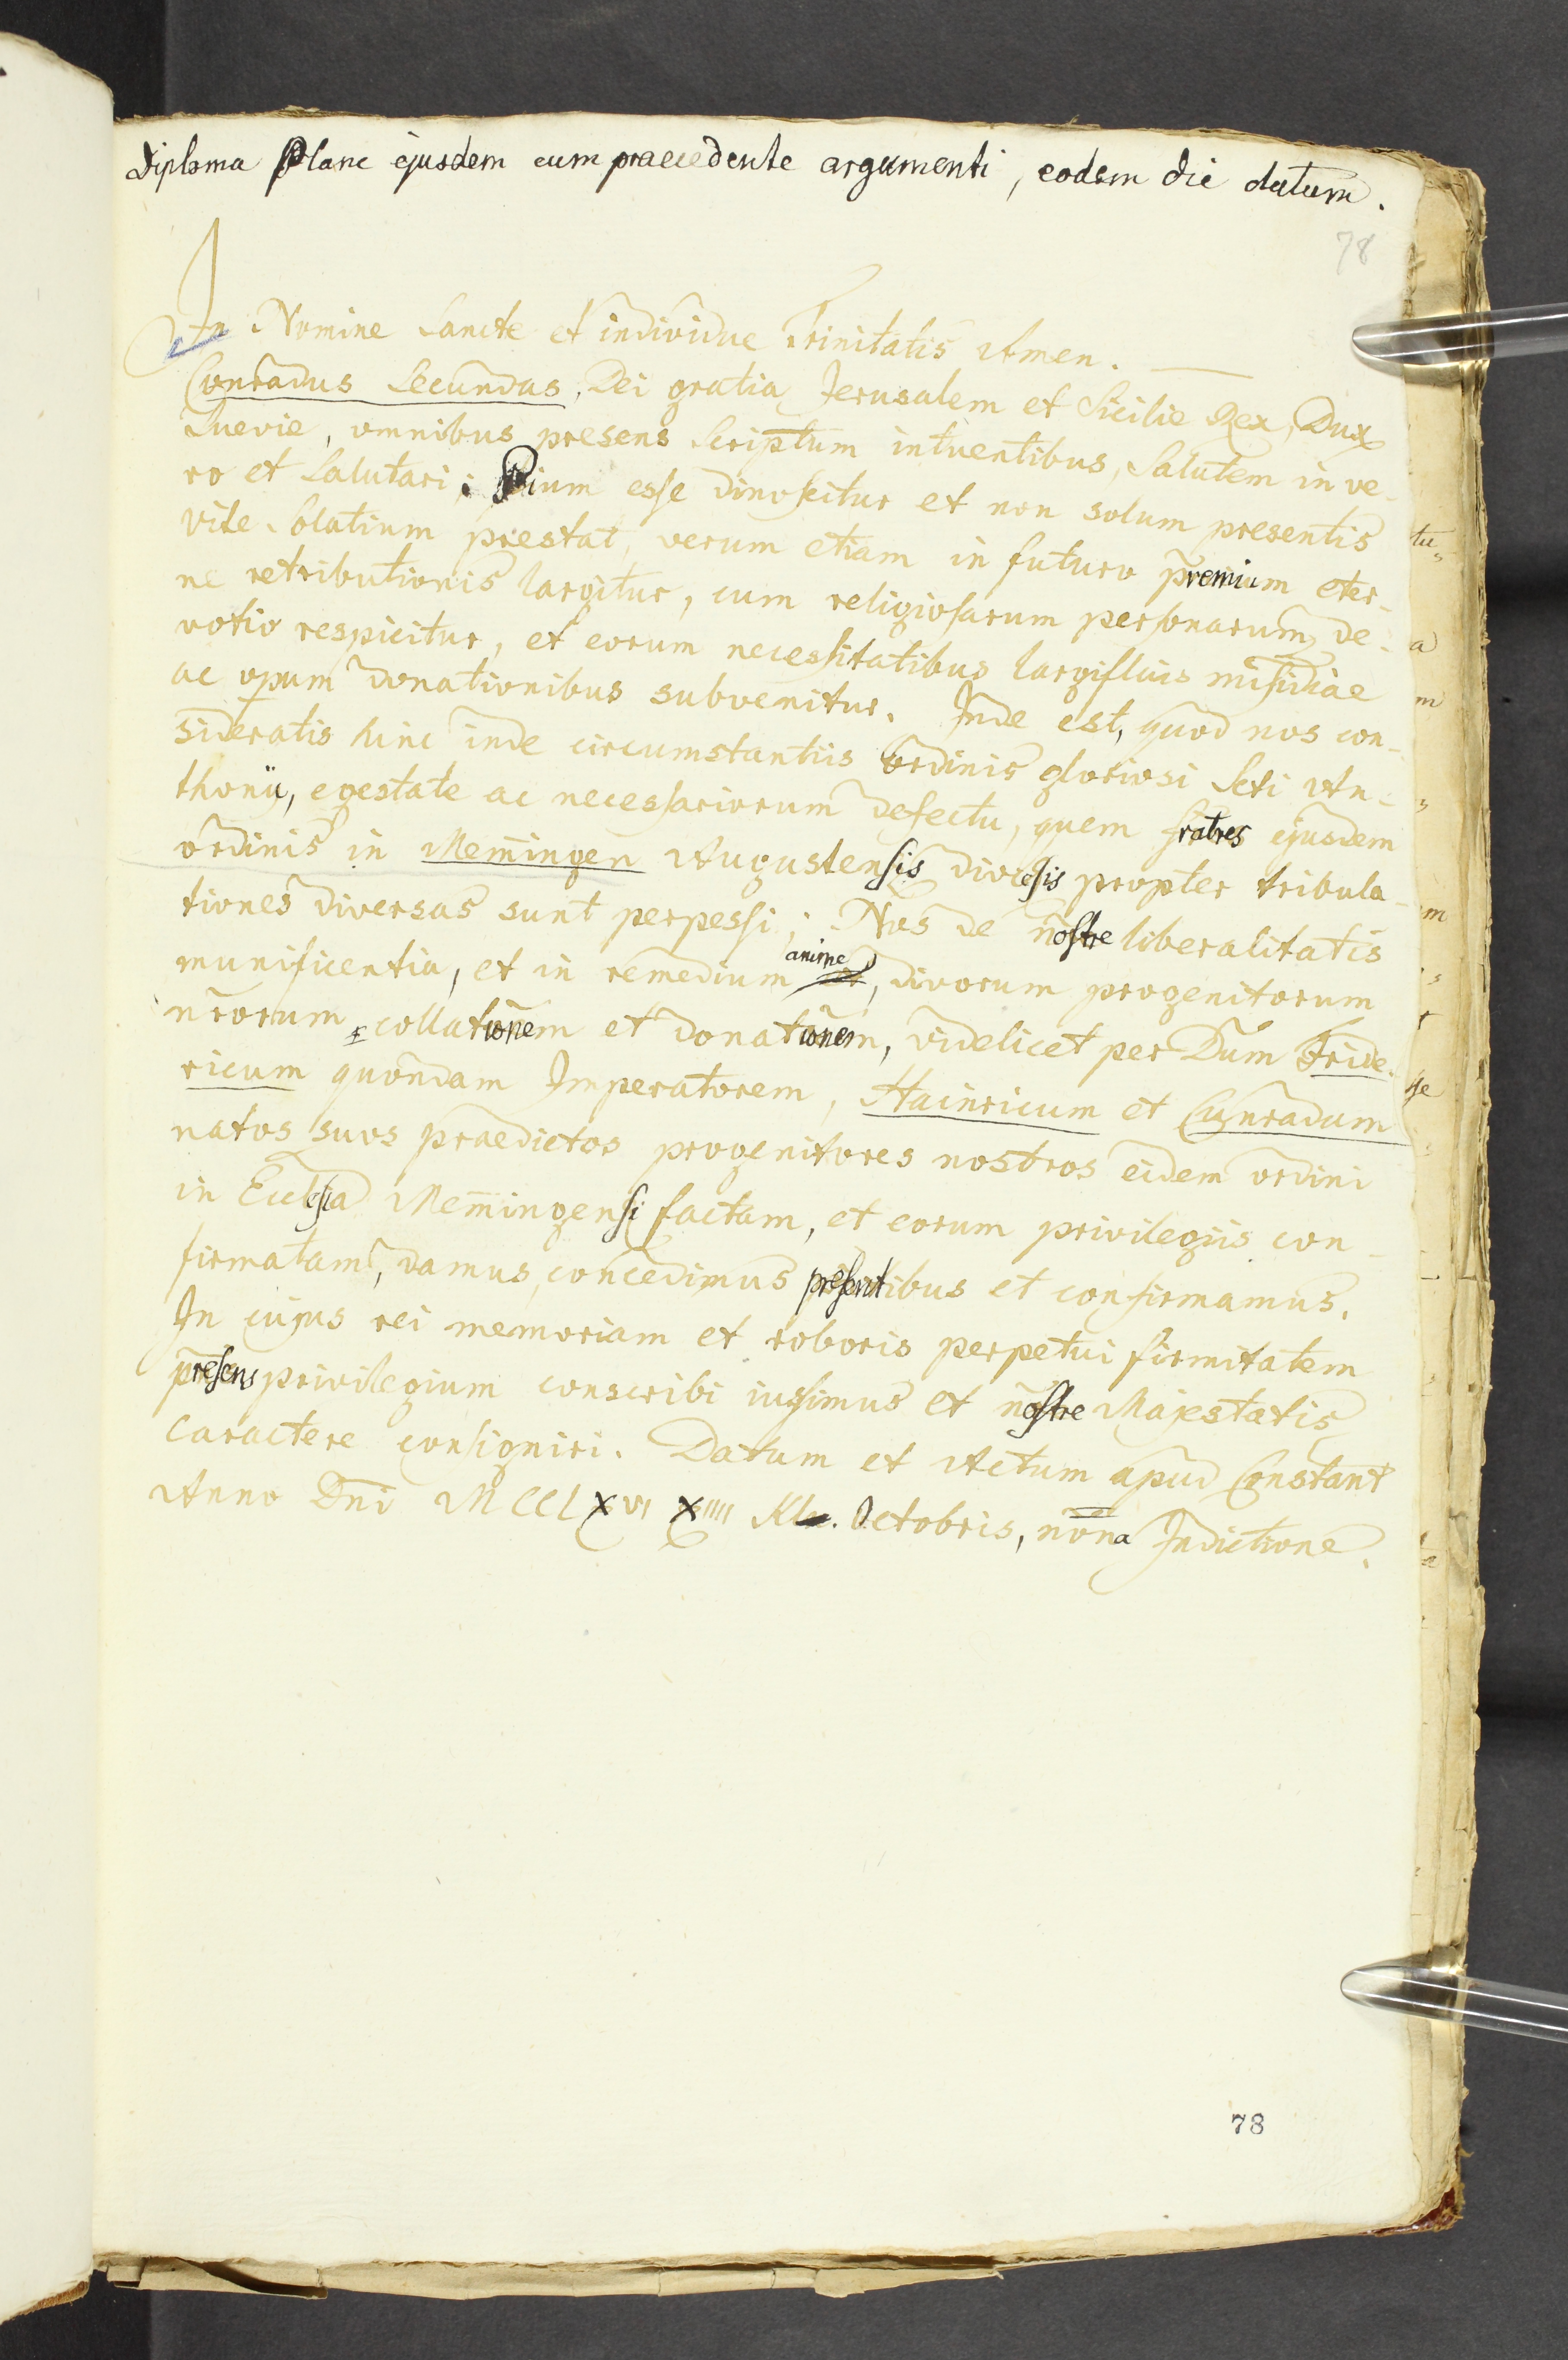 Diploma Plane ejusdem cum praecedente argumenti, eodem die datum.
78
In Nomine Sancte et individue Trinitatis Amen.
Conradus Secundus, Dei gratia Jerusalem et Sicilie Rex, Dux
Suevie, omnibus presens Scriptum intuentibus, Salutem in ve-
ro et Salutari; Pium esse dinoscitur et non solum presentis
vite Solatium prestat, verum etiam in futuro premium eter-
ne retributionis largitur, cum religiosarum personarum de-
votio respicitur, et eorum necessitatibus largifluis
ac opum donationibus subvenitur. Inde est, quod nos con-
sideratis hinc inde circumstantiis ordinis gloriosi Scti An-
thonii, egestate ac necessariorum defectu, quem fratres ejusdem
ordinis in Memingen Augustensis diocesis propter tribula-
tiones diversas sunt perpessi; Nos de nostre liberalitatis
munificentia, et in remedium anime, divorum progenitorum
nrorum collationem et donationem, videlicet per Dum Fride-
ricum quondam Imperatorem, Hainricum et Cunradum
natos suos praedictos progenitores nostros eidem ordini
in Eccl̄sia Memingensi factam, et eorum privilegiis con-
firmatam, damus, concedimus presentibus et confirmamus.
In cujus rei memoriam et roboris perpetui firmitatem
presens privilegium conscribi iussimus et nostre Majestatis
Caractere consigniri. Datum et Actum apud Constant
Anno Dni MCCLXVI XIIII Kl. Octobris, nona Indictione.
78